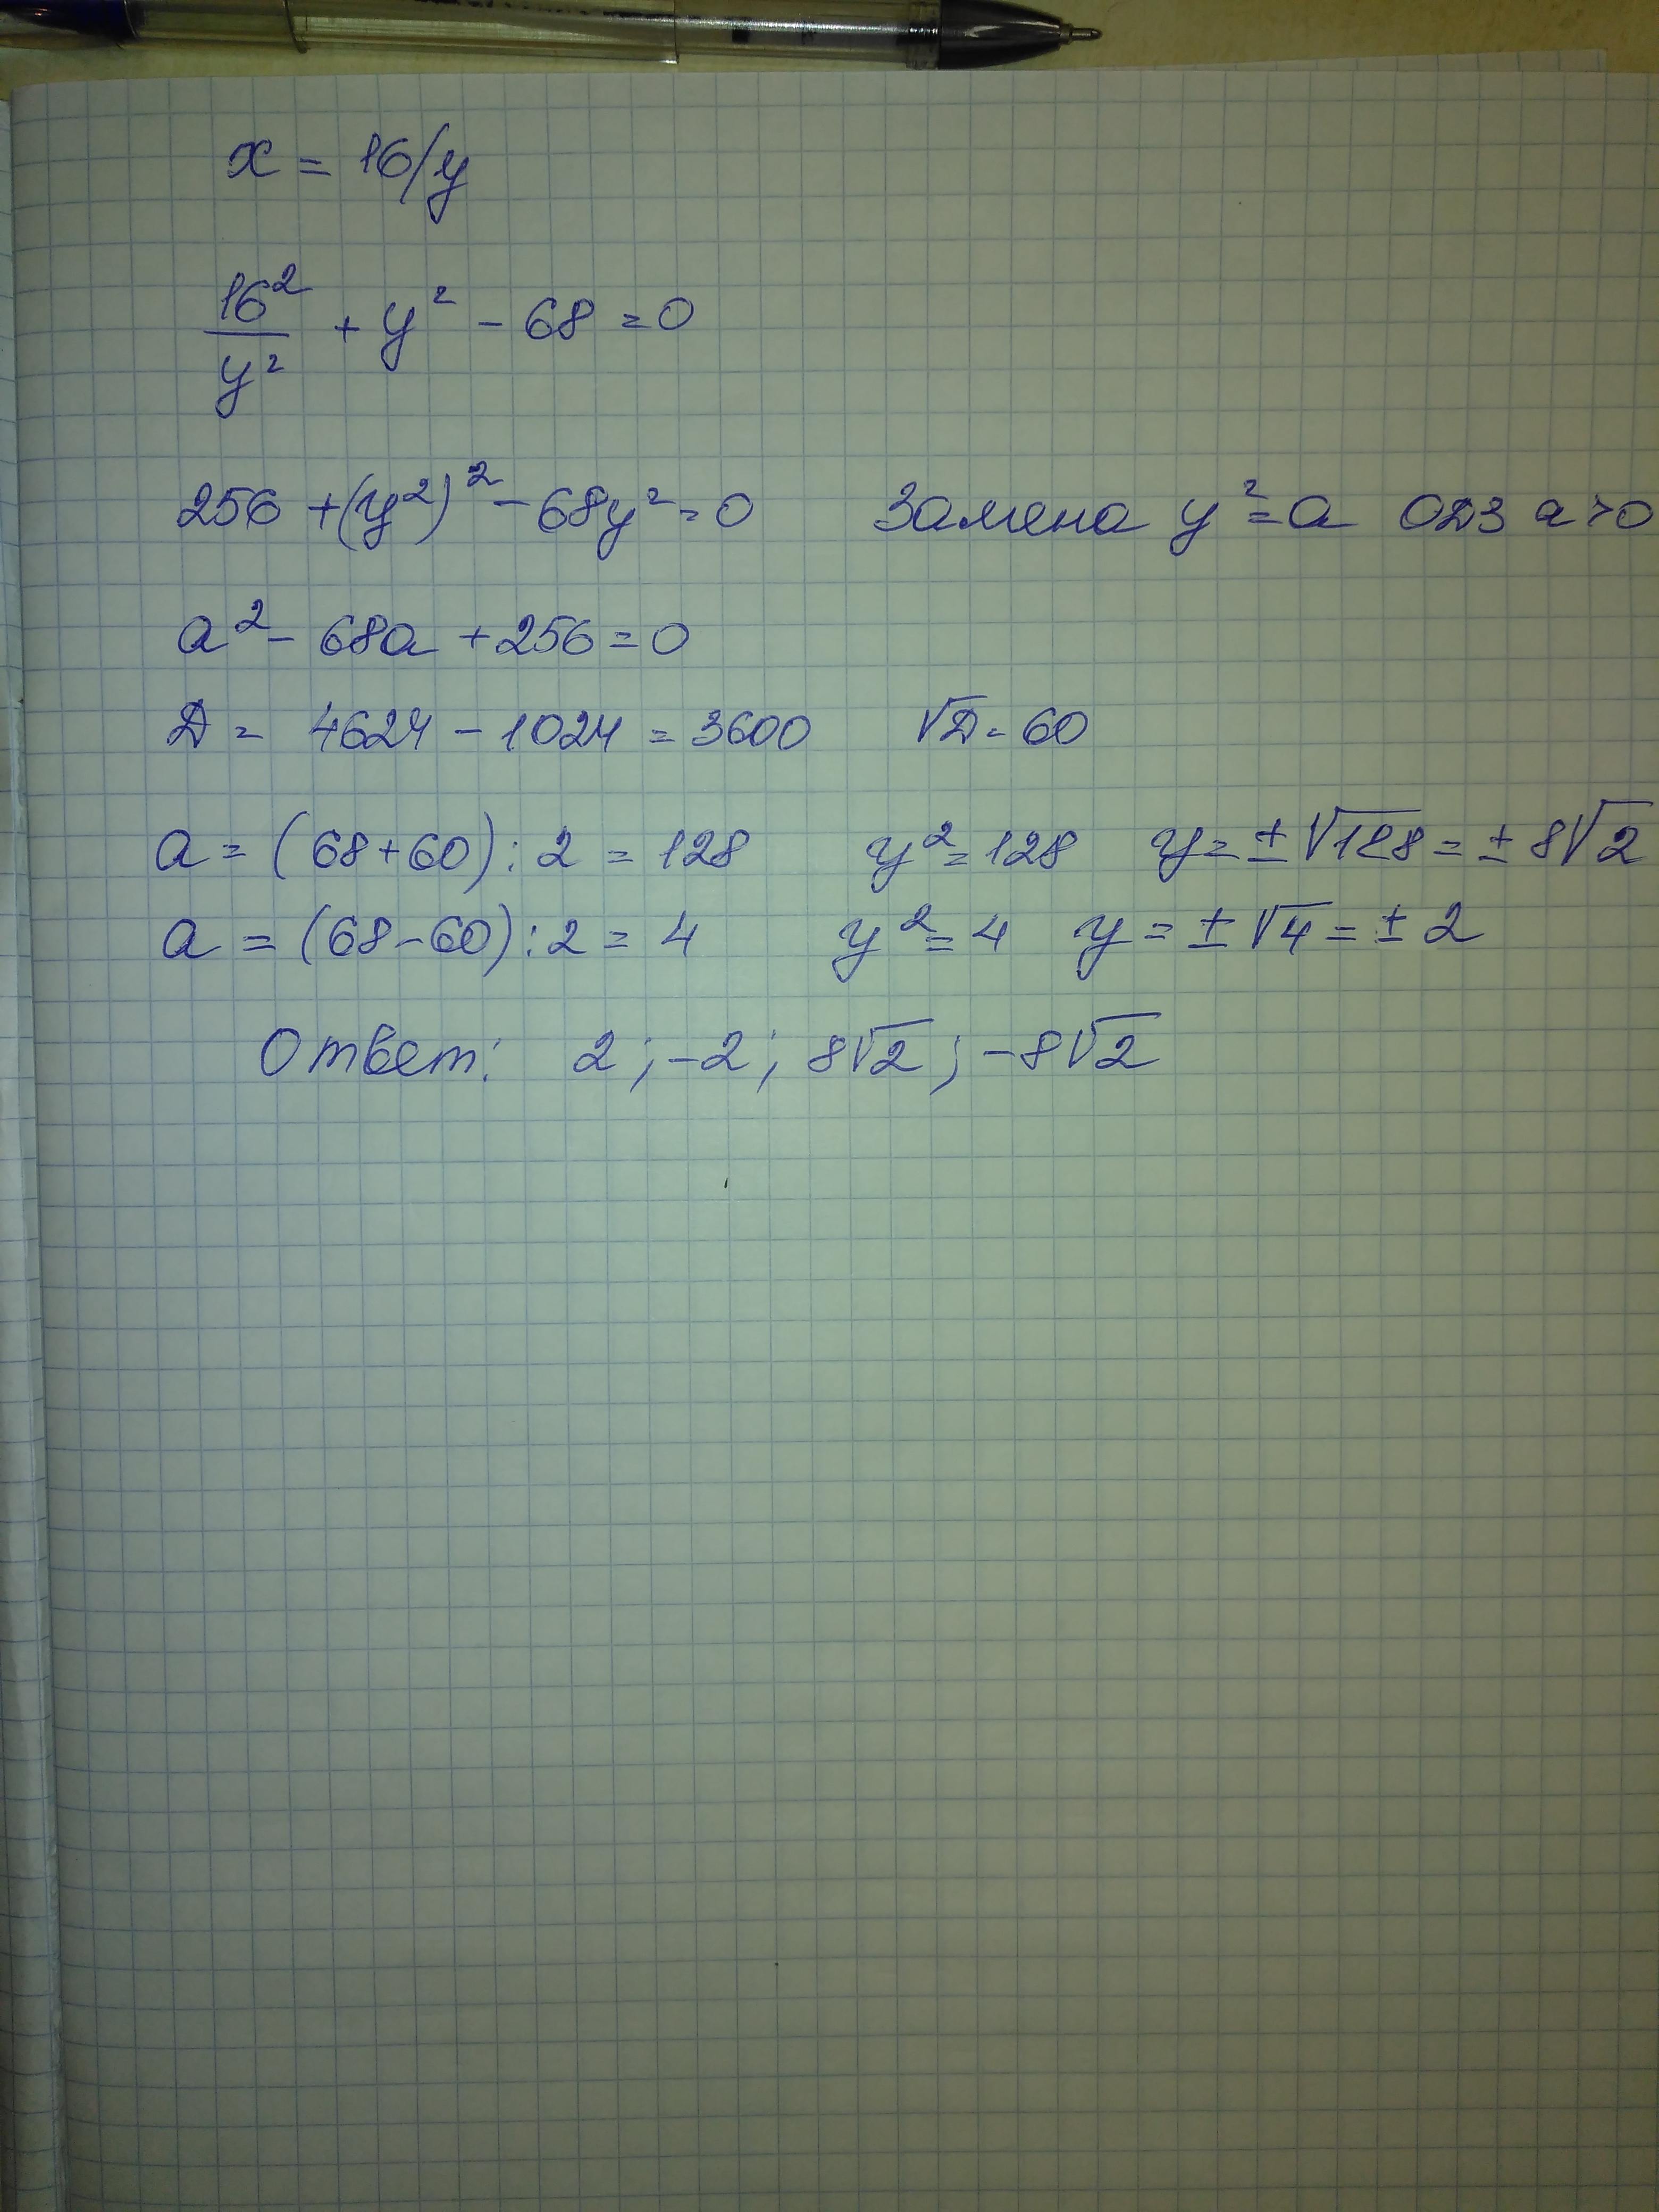 x = 16/y
16²/y² + y² - 68 = 0
256 + (y²)² - 68y² = 0 Замена y² = a ОДЗ a > 0
a² - 68a + 256 = 0
Д = 4624 - 1024 = 3600 √Д = 60
a = (68+60) : 2 = 128 y² = 128 y = ± √128 = ± 8√2
a = (68-60) : 2 = 4 y² = 4 y = ± √4 = ± 2
Ответ: 2 ; -2 ; 8√2 ; -8√2